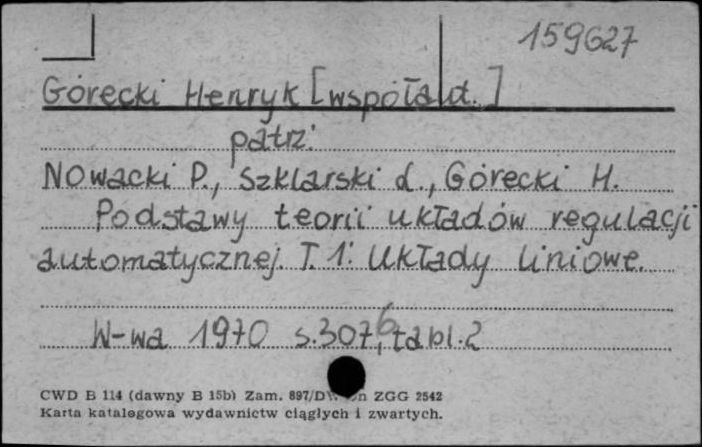 159627
Górecki Henryk [współaut.]
patrz:
Nowacki P., Szklarski L., Górecki H.
Podstawy teorii układów regulacji
automatycznej. T. 1: Układy liniowe.
W-wa 1970 s. 307, 6 tabl. 2
CWD B 114 (dawny B 15b) Zam. 897/D ZGG 2542
Karta katalogowa wydawnictw ciągłych i zwartych.